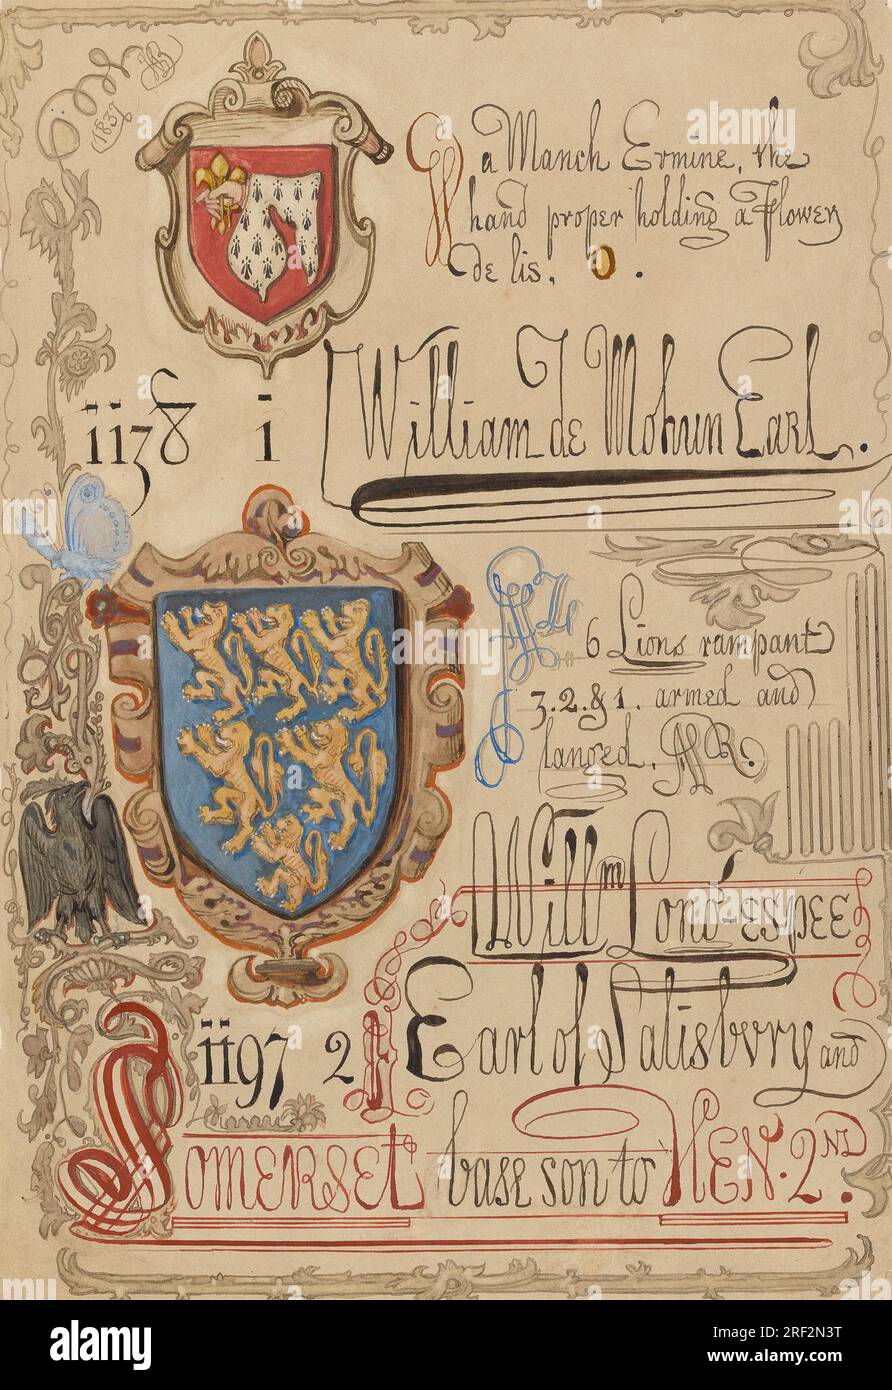 1837
a Manch Ermine, the
hand proper holding a Flower
de lis.
1138 1 William de Mohun Earl.
6 Lions rampant
3.2.&1. armed and
langed.
Will^m Long-ESPEE
Earl of Salisbvry and
1197 2
SOMERSET base son to HEN. 2ND.
alamy
Image ID: 2RF2N3T
www.alamy.com